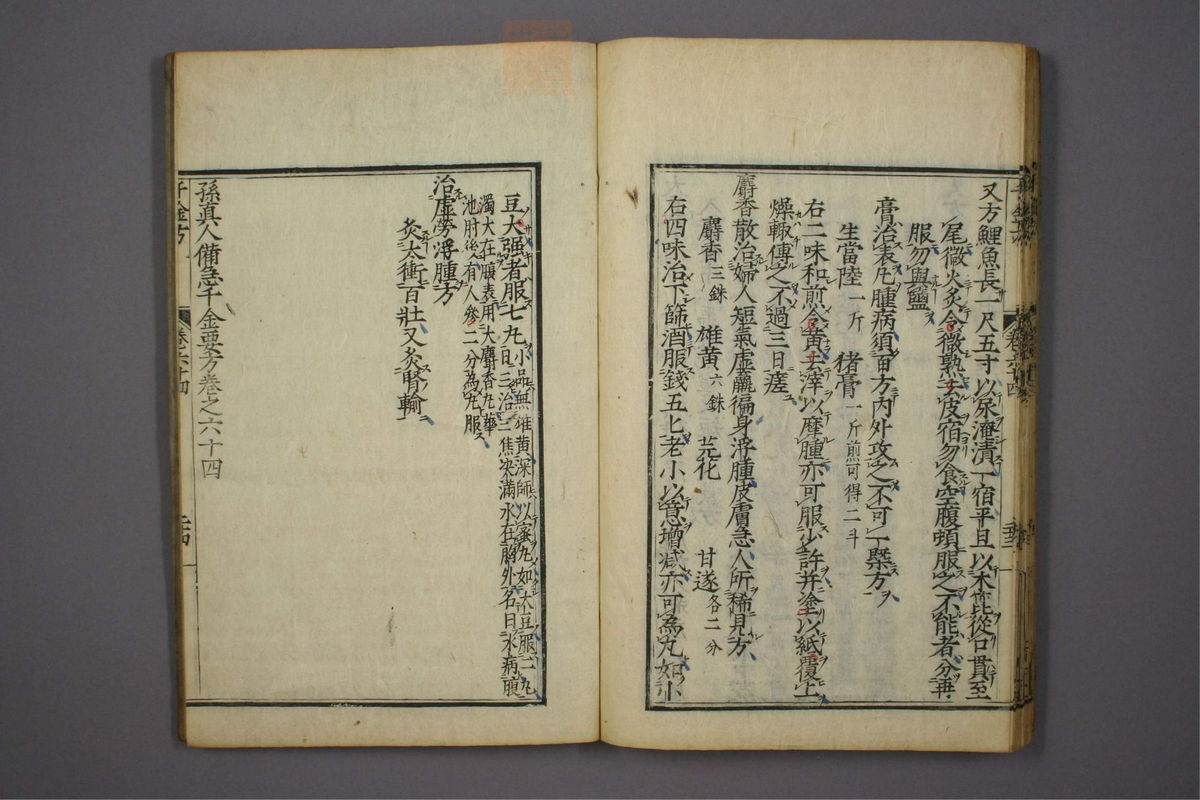 又方鯉魚長一尺五寸以尿淹漬一宿平旦以木篦從口貫至
尾微火炙令微熟去皮宿勿食空腹頓服之不能者分再
服勿與鹽
膏治表凡腫病須百方內外攻之不可一槩方
生當陸一斤 猪膏一斤煎可得二斗
右二味和煎令黃去滓以摩腫亦可服少許并塗以紙覆上
燥輙傅之不過三日瘥
麝香散治婦人短氣虛羸徧身浮腫皮膚急人所稀見方
麝香三銖 雄黃六銖 芫花 甘遂各二分
右四味治下篩酒服錢五匕老小以意增减亦可為丸如小
豆大强者服七丸小品無雄黃深師以蜜丸如大豆服二丸
日三治三焦决滿水在胸外名曰水病腹
獨大在腹表用大麝香丸華
池肘後有人參二分為丸服
治虛勞浮腫方
灸太衝百壯又灸腎輸
孫真人備急千金要方卷之六十四
千金方
卷六十四